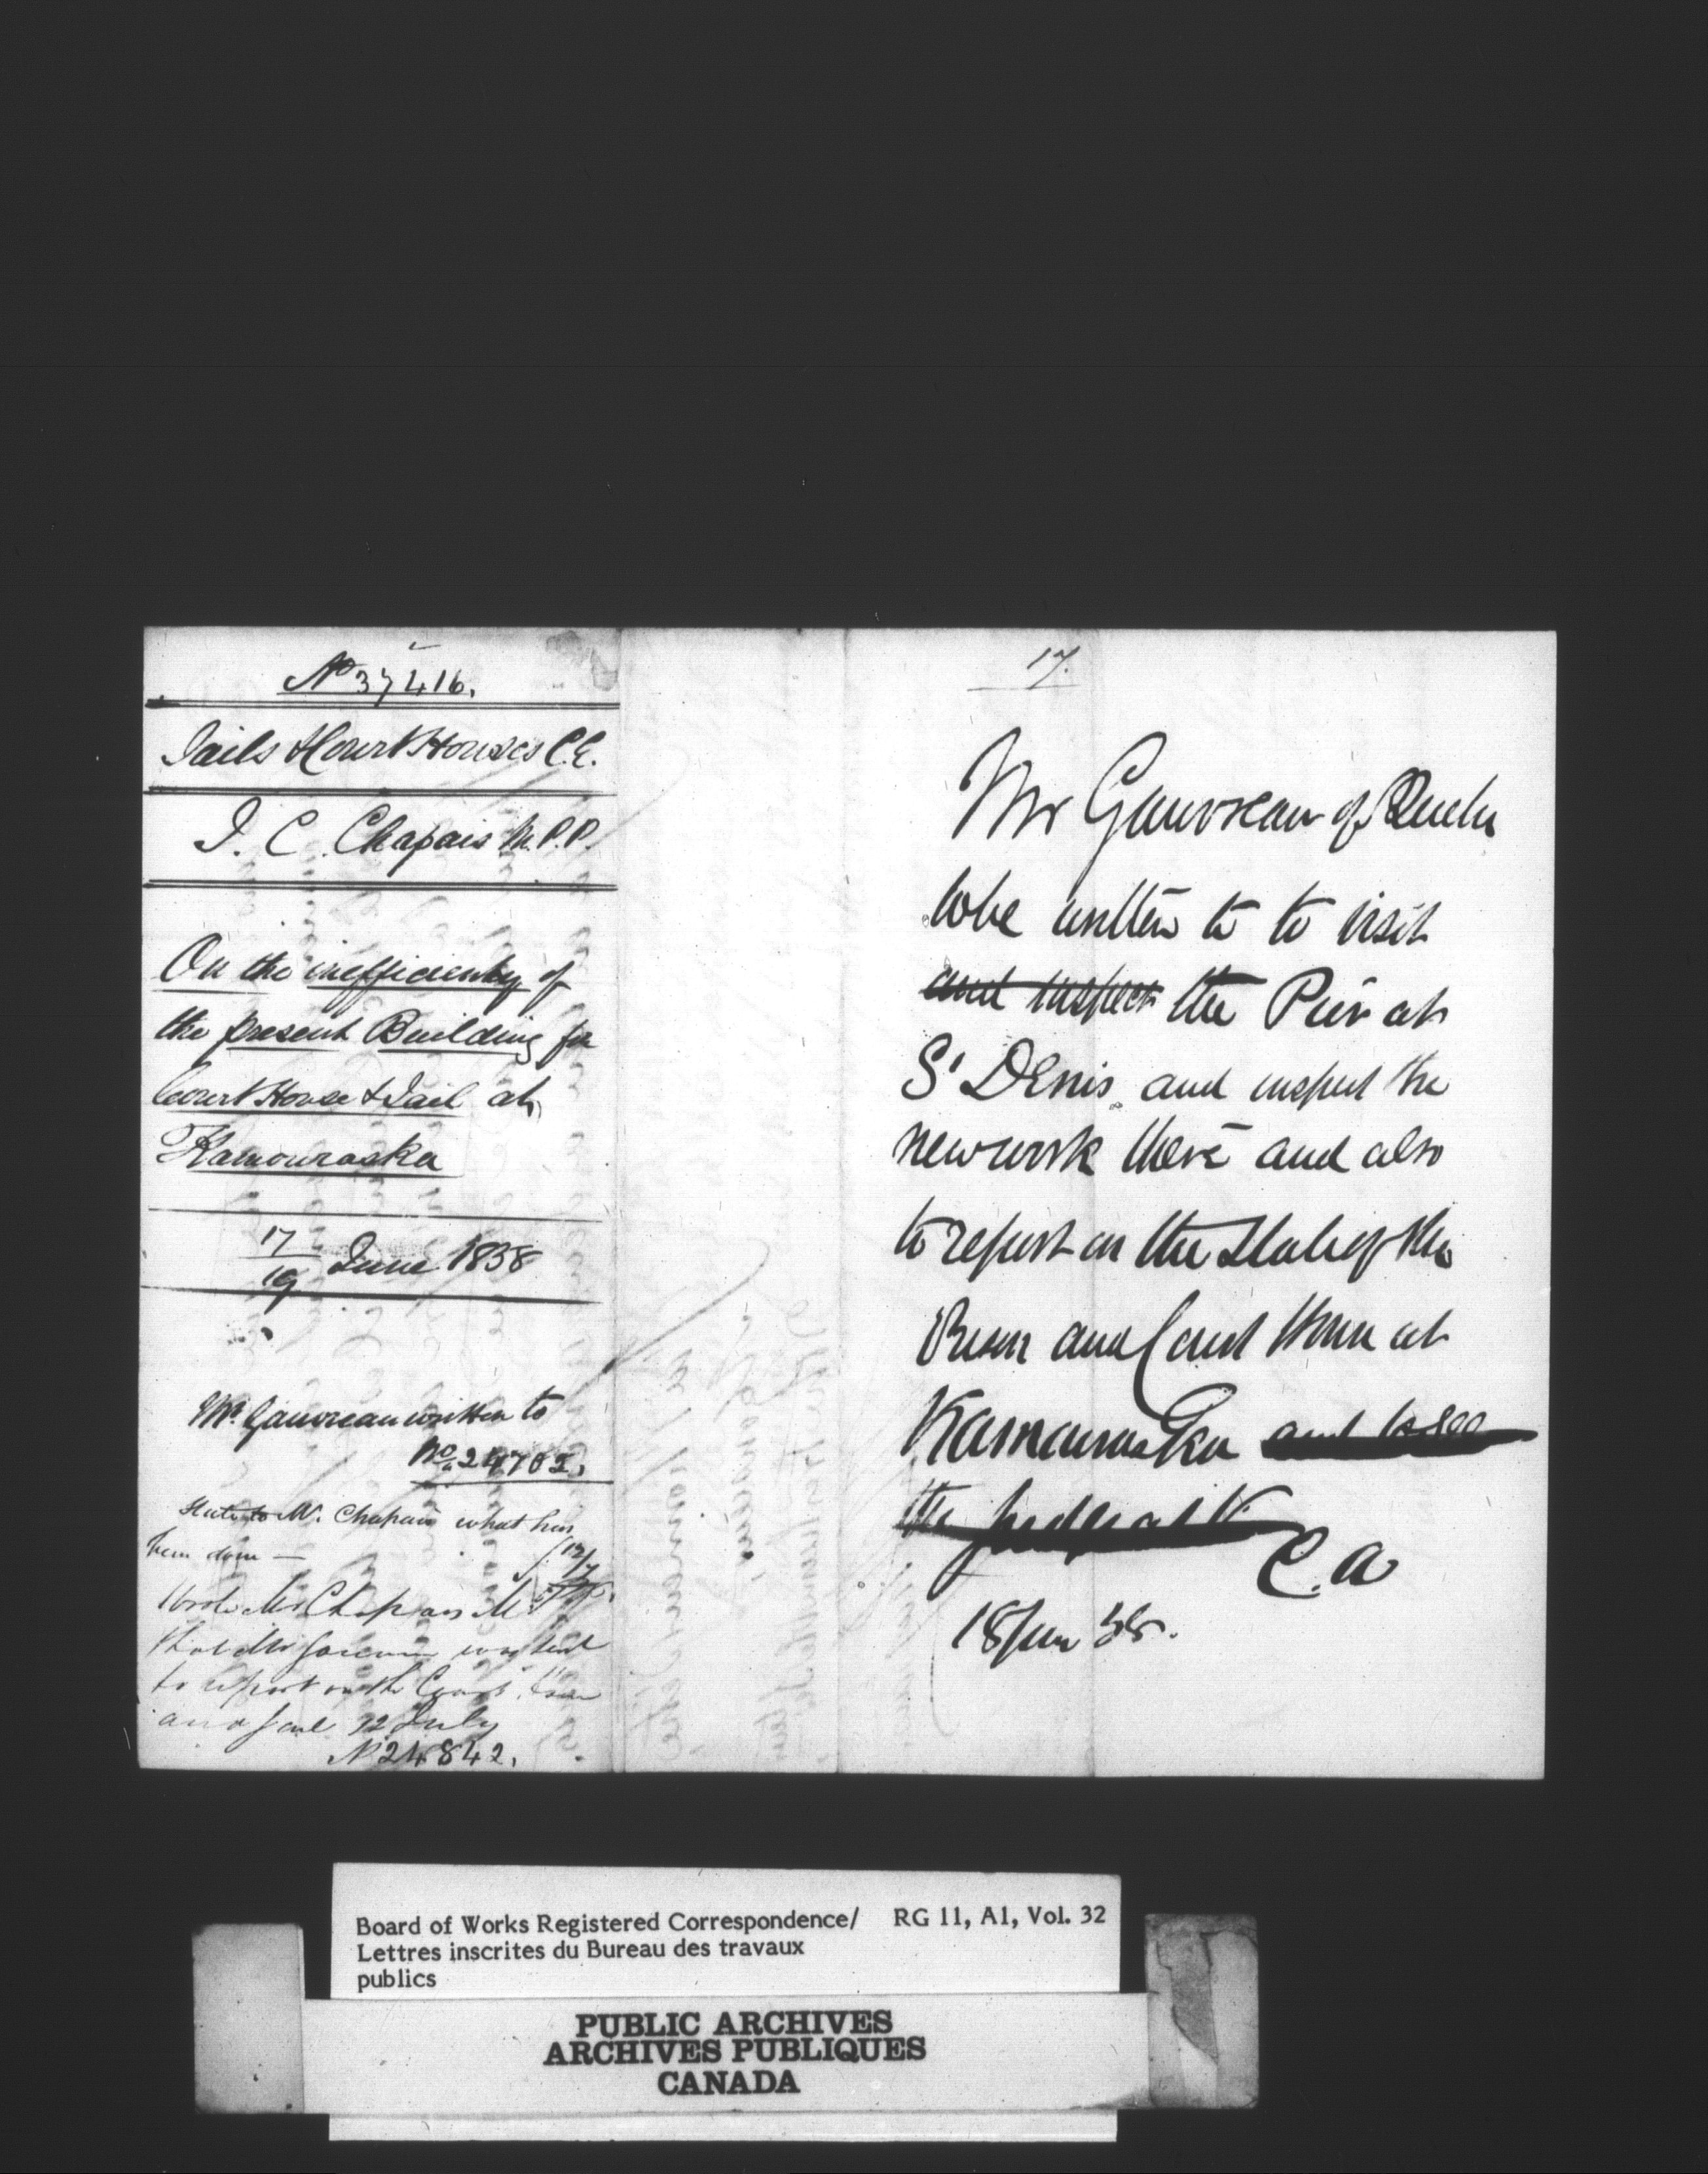 No 37416.
Jails & Court Houses C.E.
J. C. Chapais M.P.P.
On the inefficienty of
the present Building for
Court House & Jail at
Kamouraska
17
19 June 1858
Mr. Gauvreau written to
No. 24702.
State to Mr. Chapais what has
been done —
12/7
Wrote Mr Chapais M.P.P.
that Mr Gauvreau was sent
to report on the Court House
and Jail 12 July
No 24842.
17.
Mr Gauvreau of Quebec
to be written to to visit
and inspect the Pier at
St Denis and inspect the
new work there and also
to report on the State of the
Prison and Court House at
Kamouraska and to see
the
C. A
18 June 58.
Board of Works Registered Correspondence/ RG 11, A1, Vol. 32
Lettres inscrites du Bureau des travaux
publics
PUBLIC ARCHIVES
ARCHIVES PUBLIQUES
CANADA